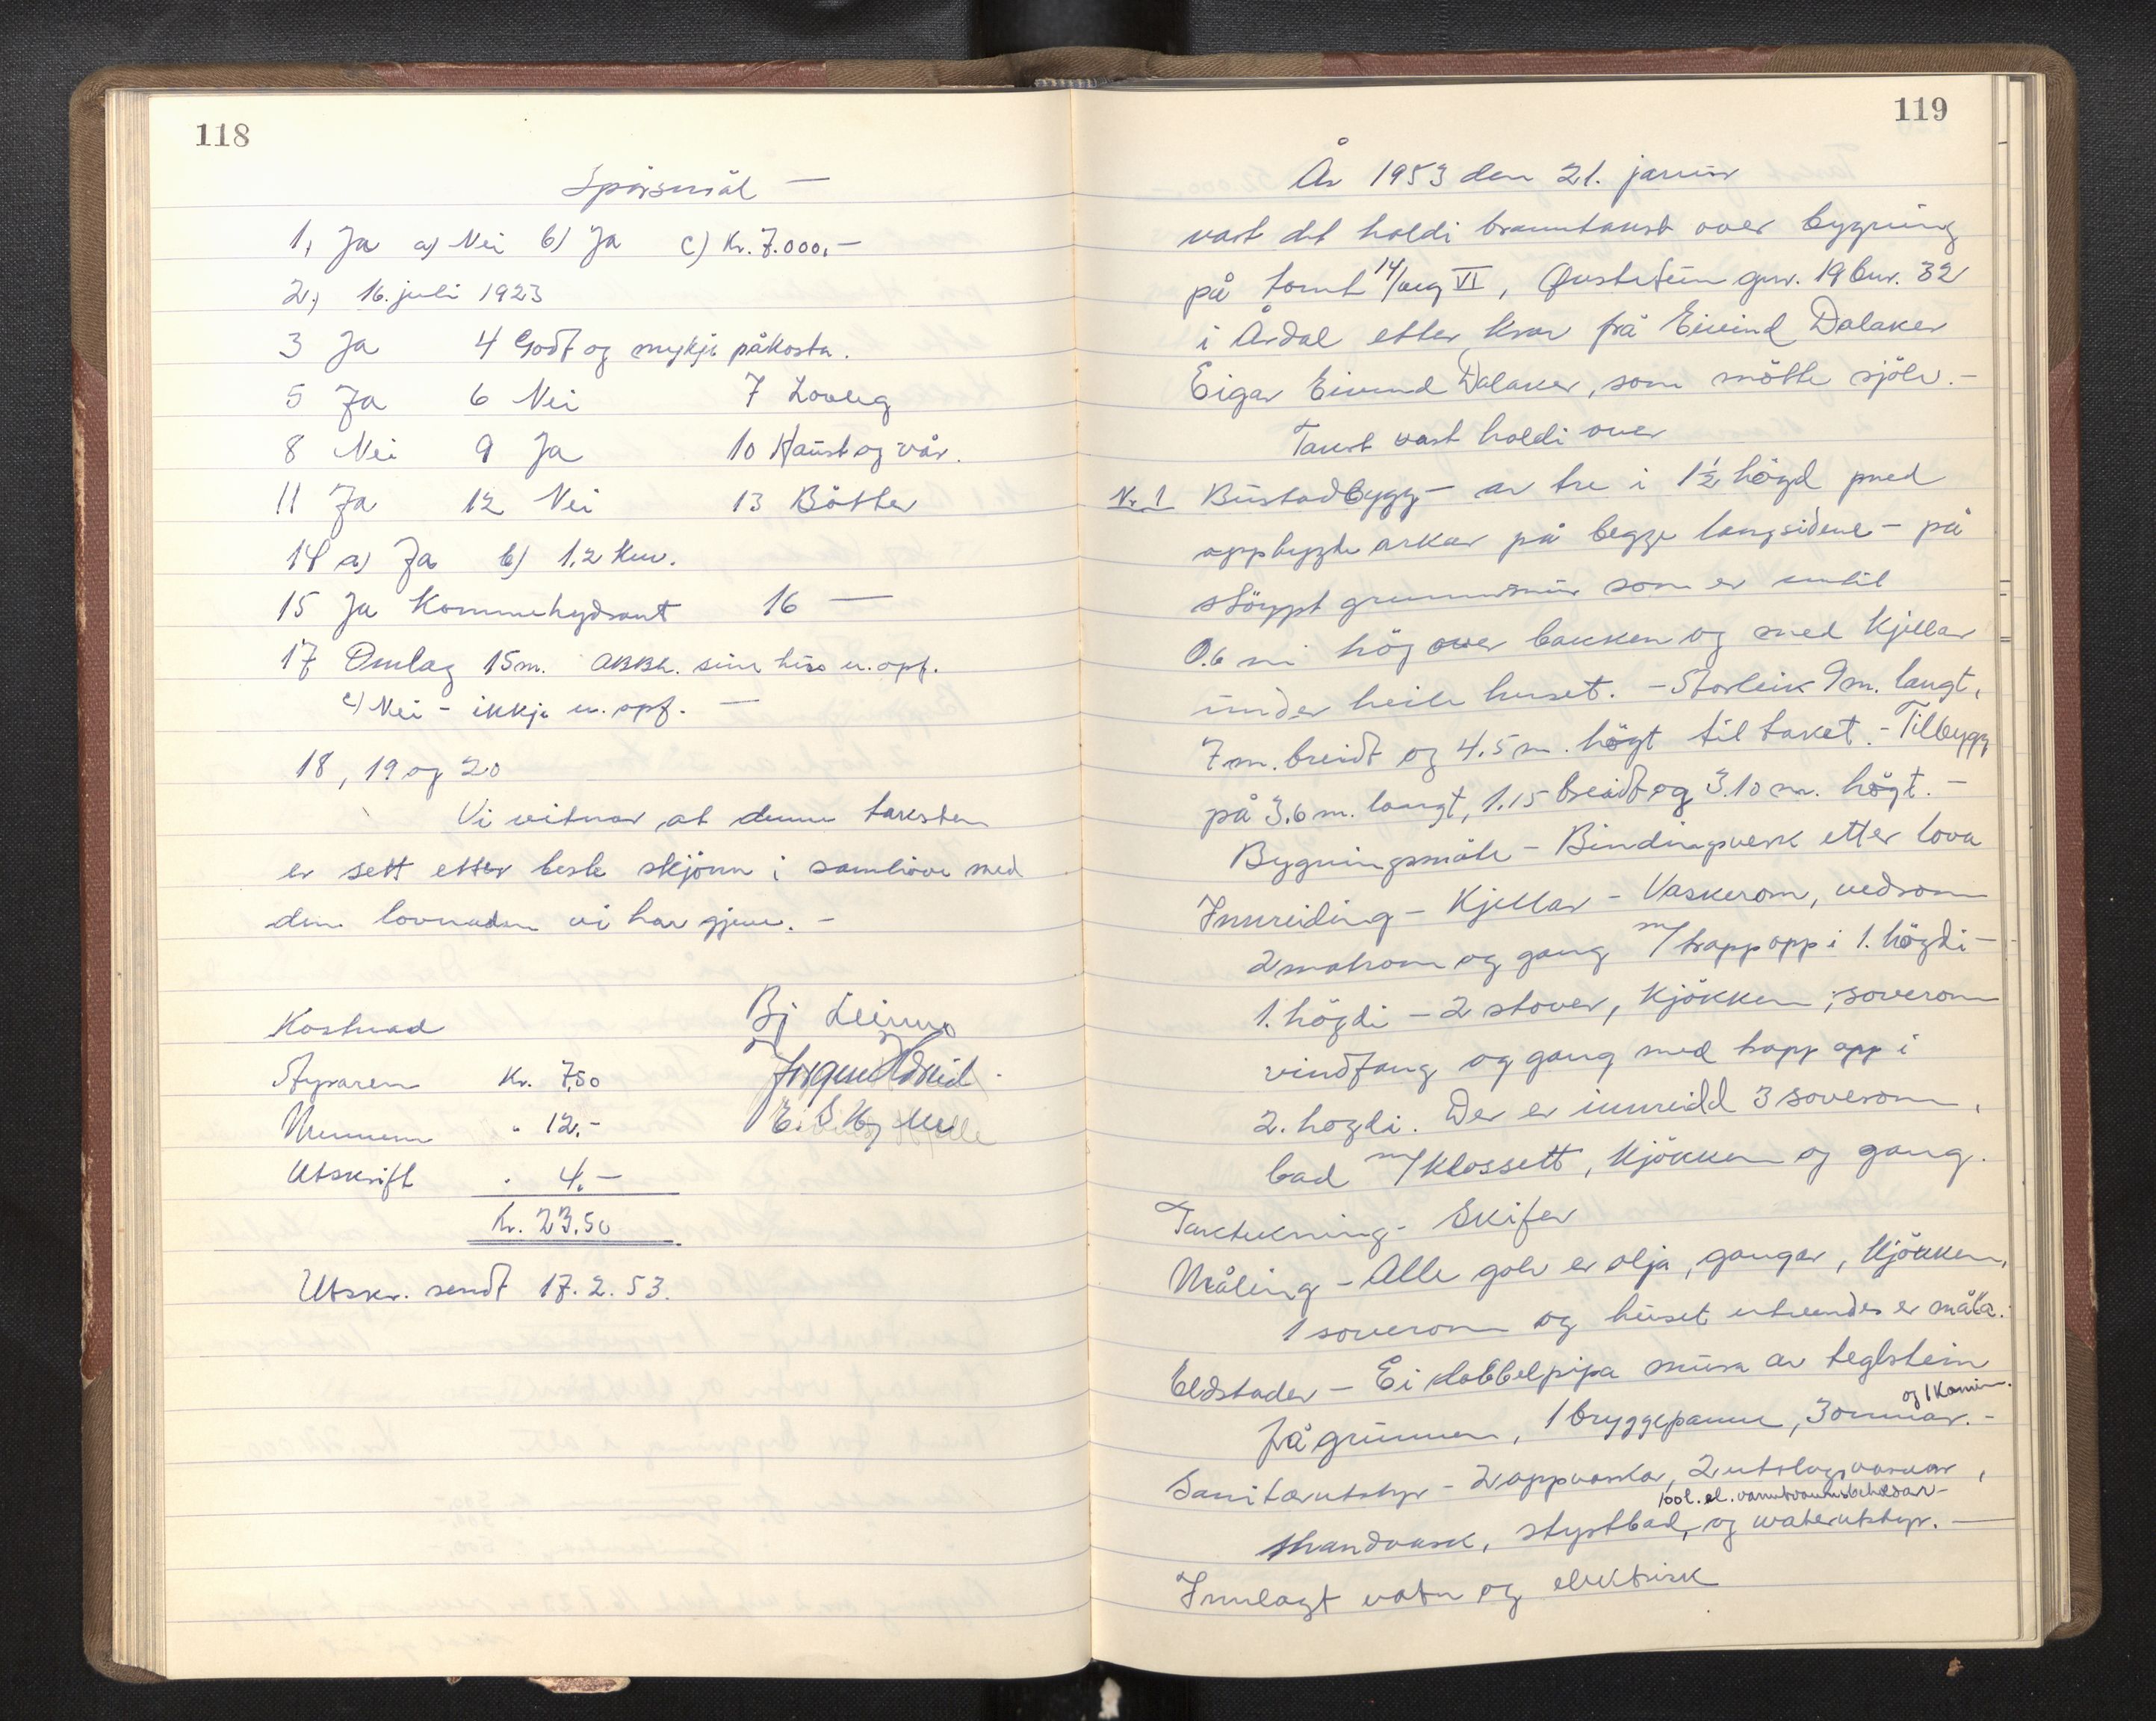 118
Spörsmål —
1, Ja a) Nei b) Ja c) Kr. 7.000,—
2, 16. juli 1923
3 Ja 4 Godt og mykje påkosta.
5 Ja 6 Nei 7 Loveg
8 Nei 9 Ja 10 Haust og vår.
11 Ja 12 Nei 13 Bötter
14 a) Ja b) 1,2 km.
15 Ja Kommehydrant 16 —
17 Omlag 15 m. sine hus u. opf.
c) Nei - ikkje u. opf. —
18, 19 og 20
Vi vitnar at denne taksten
er sett etter beste skjönn i samhöve med
den lovnaden vi har gjeve. -
Kostnad
Styraren Kr. 7,50
Mennene " 12.-
Utskrift " 4.—
Kr. 23.50
Bj
Utskr. sendt 17. 2. 53.
119
År 1953 den 21. januar
vart det haldi branntakst over bygning
på tomt 14/ VI, gnr. 19 bnr. 32
i Årdal etter krav frå Eivind Dalaker
Eigar Eivind Dalaker, som mötte sjölv. -
Takst vart haldi over
Nr. 1 Bustadbygg - av tre i 1½ högd med
oppbygde arkar på begge langsidene - på
stöypt grunnmur som er inntil
0.6 m hög over bakken og med kjellar
under heile huset. - Storleik 9 m. langt,
7 m. breidt og 4.5 m. högt til taket. - Tilbygg
på 3.6 m. langt, 1.15 breidt og 3.10 m. högt. -
Bygningsmåte - Bindingsverk etter lova
Innreiding - Kjellar - Vaskerom, vedrom
2 matrom og gang m/trapp opp i 1. högdi -
1. högdi - 2 stover, kjökken, soverom
vindfang og gang med trapp opp i
2. hogdi. Der er innreidd 3 soverom,
bad m/klossett, kjökken og gang.
Taktekning - Skifer
Måling - Alle golv er olja, gangar, kjökken,
1 soverom og huset utvendes er måla.
Eldstader - Ei dobbelpipa mura av teglstein
frå grunnen, 1 bryggepanne, 3 omnar. -
og 1 kamin.
Sanitærutstyr - 2 oppvaskar, 2 utslagsvaskar,
100 l. el. varmtvannsbehaldar -
1 handvask, støytbad, og waterutstyr. —
Innlagt vatn og elektrisk